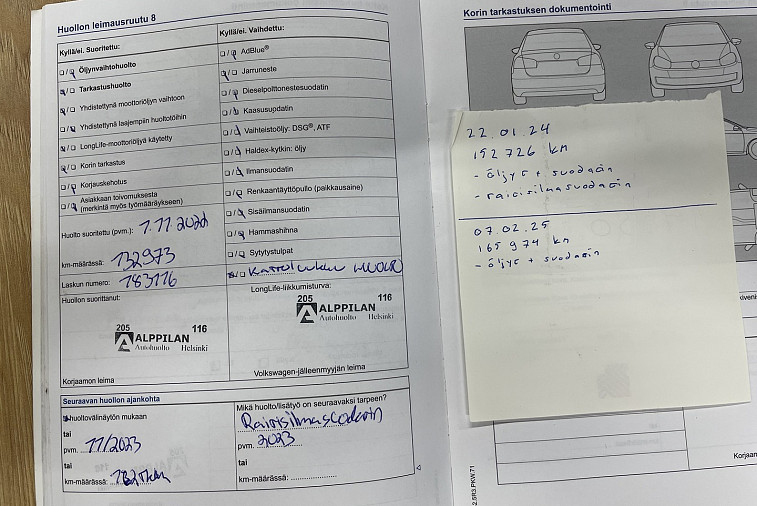 Huollon leimausruutu 8
Kyllä/ei. Suoritettu:
Öljynvaihtohuolto
Tarkastushuolto
Yhdistettynä moottoriöljyn vaihtoon
Yhdistettynä laajempiin huoltotöihin
LongLife-moottoriöljyä käytetty
Korin tarkastus
Korjauskehotus
Asiakkaan toivomuksesta
(merkintä myös työmääräykseen)
Huolto suoritettu (pvm.): 1.11.2022
km-määrässä: 132973
Laskun numero: 183116
Huollon suorittanut:
205 116
ALPPILAN
Autohuolto Helsinki
Korjaamon leima
Kyllä/ei. Vaihdettu:
AdBlue®
Jarruneste
Dieselpolttonestesuodatin
Kaasusuodatin
Vaihteistoöljy: DSG®, ATF
Haldex-kytkin: öljy
Ilmansuodatin
Renkaantäyttöpullo (paikkausaine)
Sisäilmansuodatin
Hammashihna
Sytytystulpat
LongLife-liikkumisturva:
205 116
ALPPILAN
Autohuolto Helsinki
Volkswagen-jälleenmyyjän leima
Seuraavan huollon ajankohta
huoltovälinäytön mukaan
tai
pvm. 11/2023
tai
km-määrässä:
Mikä huolto/lisätyö on seuraavaksi tarpeen?
Raitisilmasuodatin
pvm. 2023
tai
km-määrässä:
Korin tarkastuksen dokumentointi
22.01.24
152 726 km
- öljyt + suodatin
- raitisilmasuodatin
07.02.25
165 974 km
- öljyt + suodatin
Korjaam
2.5R3.PKW.71